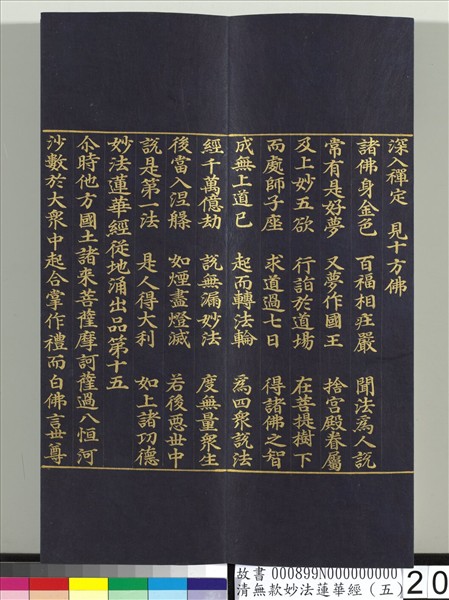 深入禪定　見十方佛
諸佛身金色　百福相庄嚴　聞法為人說
常有是好夢　又夢作國王　捨宮殿眷屬
及上妙五欲　行詣於道場　在菩提樹下
而處師子座　求道過七日　得諸佛之智
成無上道已　起而轉法輪　為四衆說法
經千萬億劫　說無漏妙法　度無量衆生
後當入涅槃　如煙盡燈滅　若後惡世中
說是第一法　是人得大利　如上諸功德
妙法蓮華經從地涌出品第十五
尒時他方國土諸來菩薩摩訶薩過八恒河
沙數於大衆中起合掌作禮而白佛言世尊
故書 000899N000000000
清無款妙法蓮華經（五）
20